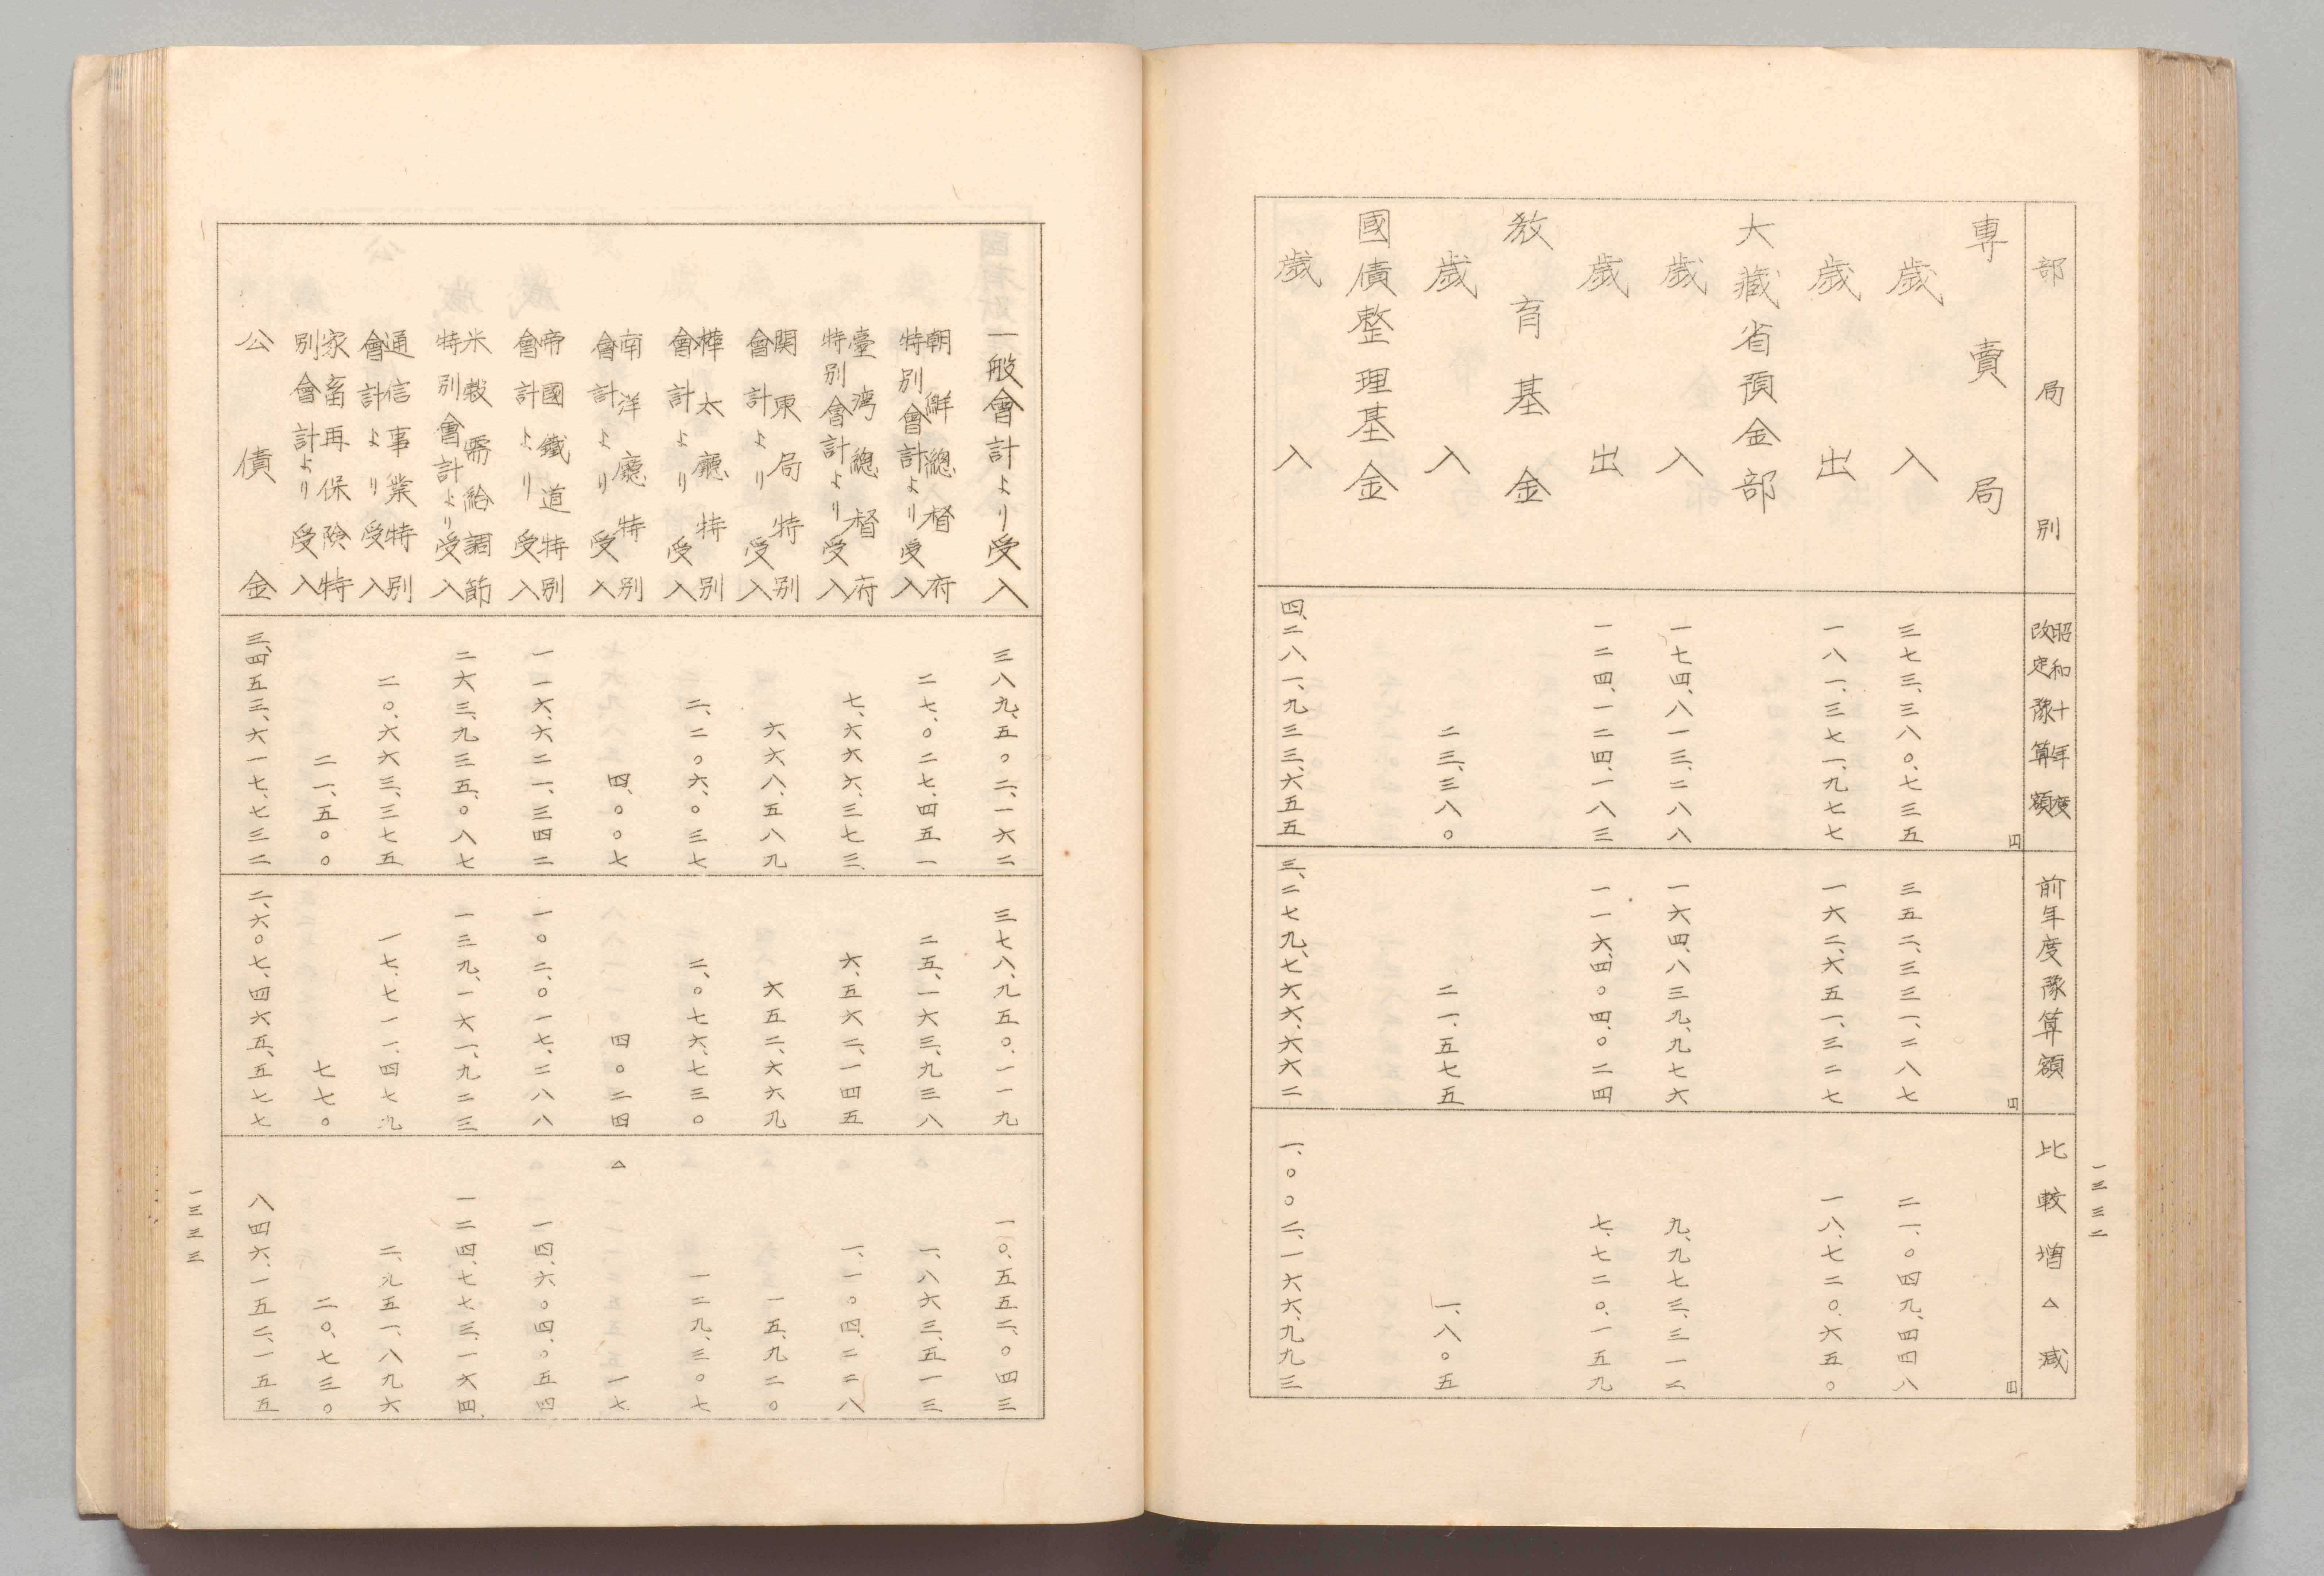 一三三二
部局別 昭和十年度改定豫算額 前年度豫算額 比較増△減
專賣局 円 円 円
歳入 三七三、三八〇、七三五 三五二、三三一、二八七 二一、〇四九、四四八
歳出 一八一、三七一、九七七 一六二、六五一、三二七 一八、七二〇、六五〇
大藏省預金部
歳入 一七四、八一三、二八八 一六四、八三九、九七六 九、九七三、三一二
歳出 一二四、一二四、一八三 一一六、四〇四、〇二四 七、七二〇、一五九
教育基金
歳入 二三、三八〇 二一、五七五 一、八〇五
國債整理基金
歳入 四、二八一、九三三、六五五 三、二七九、七六六、六六二 一、〇〇二、一六六、九九三
一般會計より受入 三八九、五〇二、一六二 三七八、九五〇、一一九 一〇、五五二、〇四三
朝鮮總督府特別會計より受入 二七、〇二七、四五一 二五、一六三、九三八 一、八六三、五一三
臺湾總督府特別會計より受入 七、六六六、三七三 六、五六二、一四五 一、一〇四、二二八
関東局特別會計より受入 六六八、五八九 六五二、六六九 一五、九二〇
樺太廳特別會計より受入 二、二〇六、〇三七 二、〇七六、七三〇 一二九、三〇七
南洋廳特別會計より受入 四、〇〇七 四〇二四 △ 一七
帝國鐵道特別會計より受入 一一六、六二一、三四二 一〇二、〇一七、二八八 一四、六〇四、〇五四
米穀需給調節特別會計より受入 二六三、九三五、〇八七 一三九、一六一、九二三 一二四、七七三、一六四
通信事業特別會計より受入 二〇、六六三、三七五 一七、七一一、四七九 二、九五一、八九六
家畜再保険特別會計より受入 二一、五〇〇 七七〇 二〇、七三〇
公債金 三、四五三、六一七、七三二 二、六〇七、四六五、五七七 八四六、一五二、一五五
一三三三